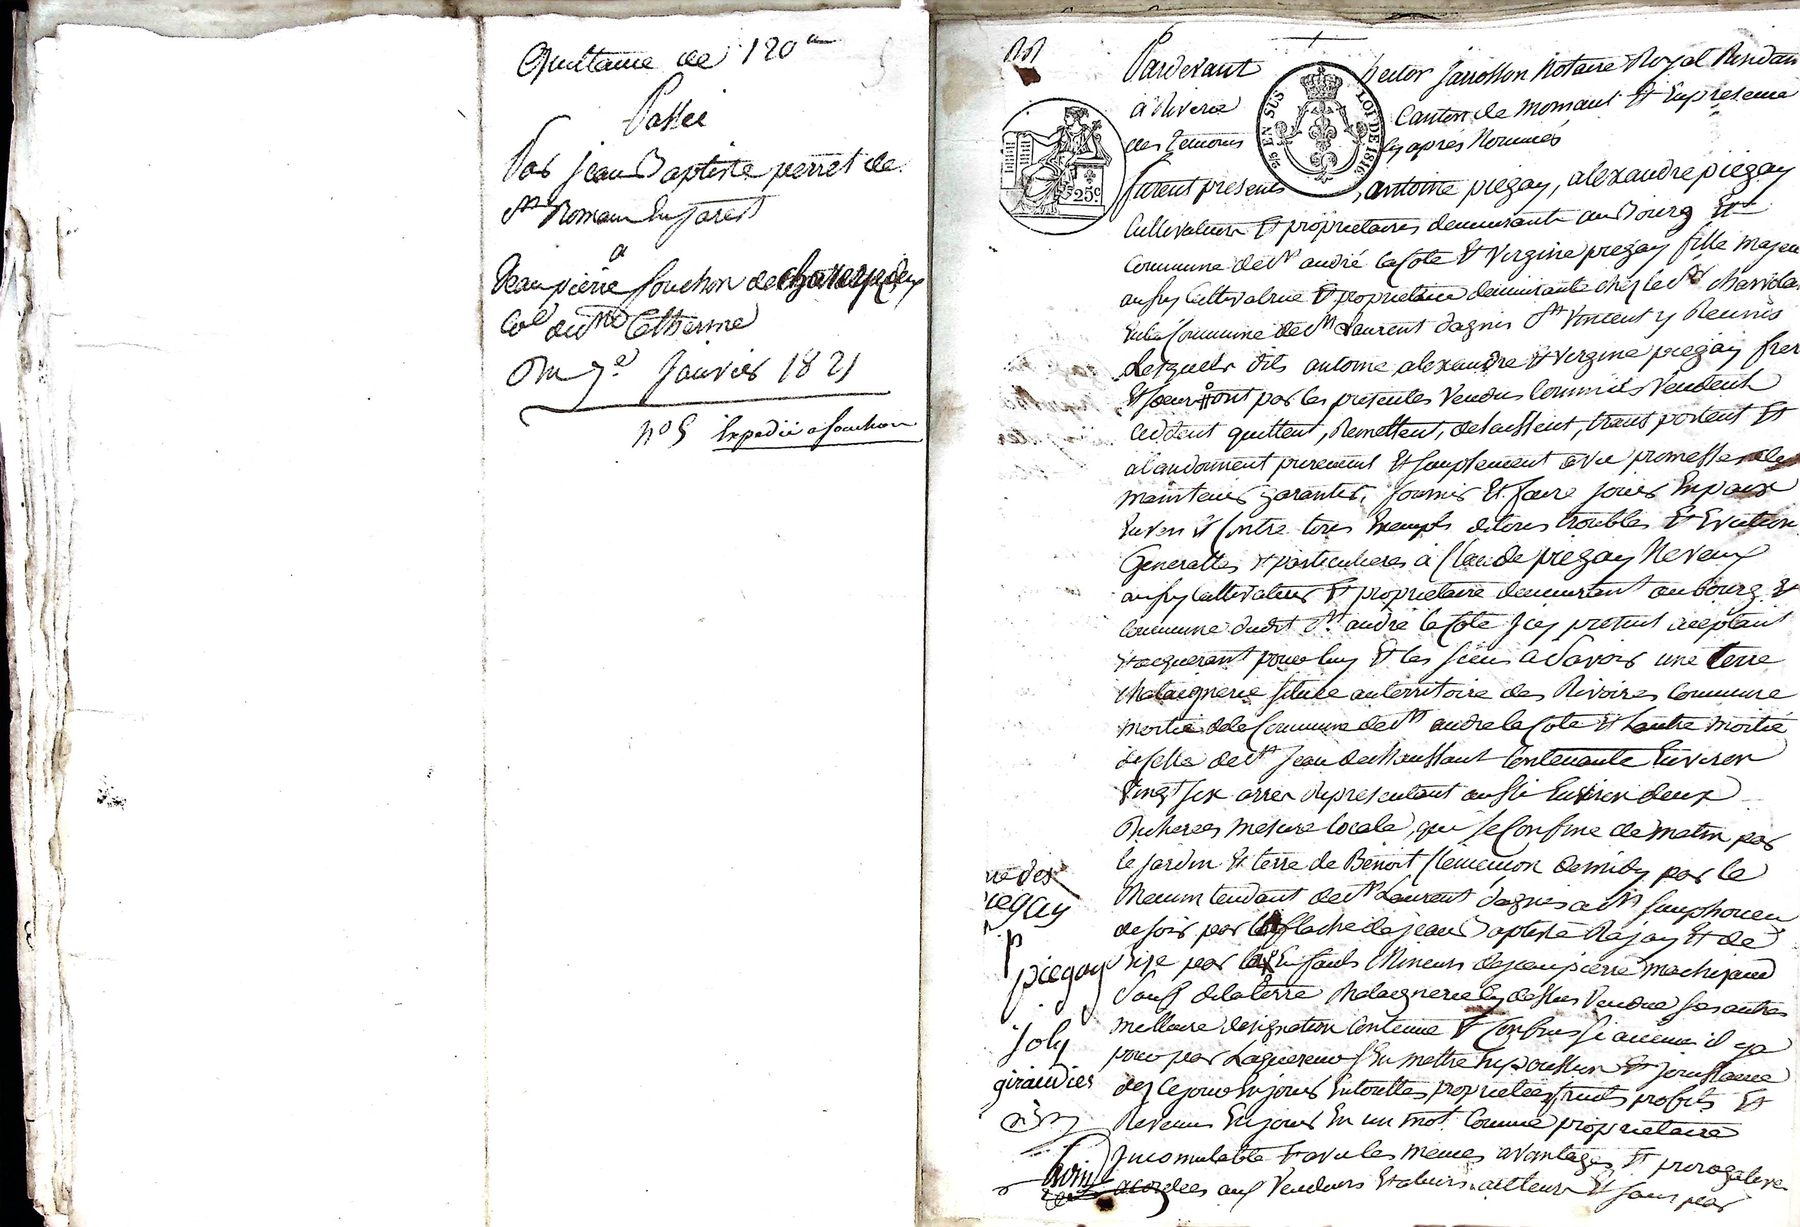 Quittance de 120
Passée
Par jean Baptiste perret de
St Romain En jarest
a
Jean pierre souchon de
Col de Ste Catherine
Du 7e Janvier 1821
No 5 Expedié a souchon
Pardevant hector Notaire Royal Residan
à Riverie Canton de Mornant Et En presence
des temoins cy après Nommés
25 EN SUS LOI DE 1816
25c
furent presents antoine piegay, alexandre piegay
Cultivateurs Et proprietaires demeurants au Bourg Et
Commune de St andré la Cote Et Virgine piegay fille majeu
aussy Cultivatrice Et proprietaire demeurante chez le
En la Commune de St Laurent dagnis St Vincent y Reunis
Lesquels dits antoine alexandre Et Virgine piegay frer
Et soeur ont par les presentes Vendus Comme ils Vendent
ceddent quittent, Remettent, delaissent, transportent Et
abandonnent purement Et simplement avec promesses de
maintenir garantir, fournir Et faire jouir En paix
Envers Et Contre tous Exempts de tous troubles Et Eviction
Generalles Et particulieres à Claude piegay Neveux
aussy Cultivateur Et proprietaire demeurant au bourg Et
Commune dudit St andré la Cote Icy present acceptant
Et acquerant pour luy Et les siens a Savoir une terre
Chataignerie situee au territoire des Rivoires Commune
moitié de la Commune de St andre la Cote Et Lautre moitié
de Celle de St Jean de Chaussant Contenante Environ
Vingt six arres Representant aussi Environ deux
Bicherees mesure locale, qui se Confine de matin par
le jardin Et terre de Benoit de midy par le
Chemin tendant de St Laurent dagnis a St Simphorien
de soir par flache de jean Baptiste Rajay Et de
Bize par Enfants Mineurs de jean pierre
Sauf de la terre Chataigneriee Cy dessus Vendue ses autres
meilleure designation Contenue Et Confins si aucune il y a
pour par Laquereur sEn mettre En possession Et jouissance
dez Ce jour En jouir En touttes proprietées fruits profits Et
Revenus En jouir En un mot Comme proprietaire
Incomutable Et avec les memes avantages Et prerogative
acordées aux Vendeurs Et ailleurs Et sans par
piegay
p
piegay
joly
giraudier